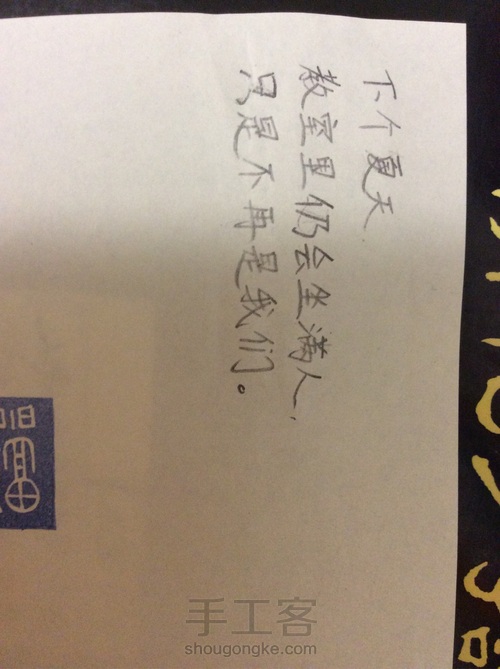 下个夏天
教室里仍会坐满人，
只是不再是我们。
手工客
shougongke.com